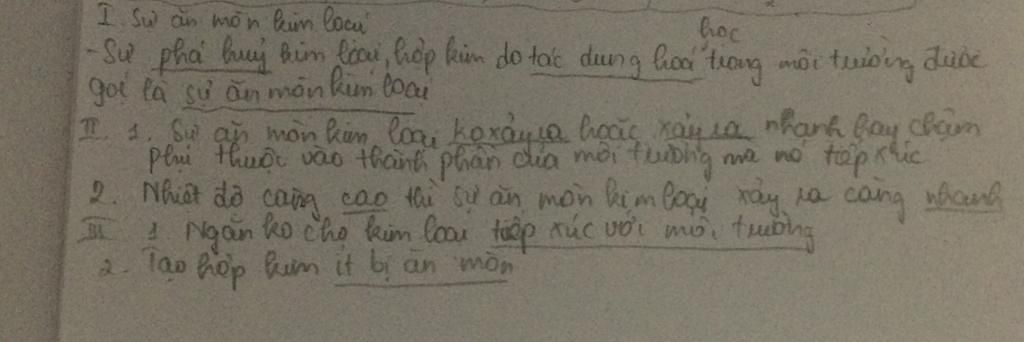 I. Sự ăn mòn kim loại
- Sự phá huỷ kim loại, hợp kim do tác dụng hoá học trong môi trường được
gọi là sự ăn mòn kim loại
II 1. Sự ăn mòn kim loại ko xảy ra hoặc xảy ra nhanh hay chậm
phụ thuộc vào thành phần của môi trường mà nó tiếp xúc
2. Nhiệt độ càng cao thì sự ăn mòn kim loại xảy ra càng nhanh
III 1. Ngăn ko cho kim loại tiếp xúc với môi trường
2. Tạo hợp kim ít bị ăn mòn